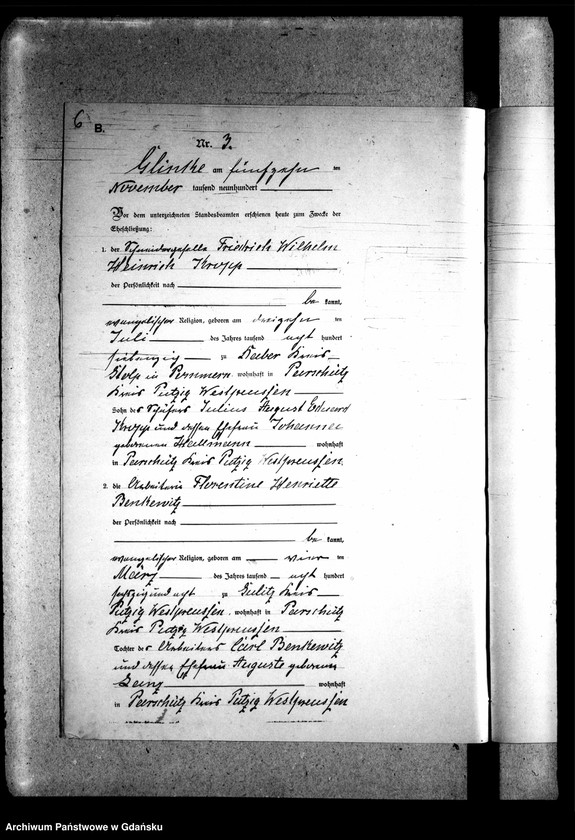 6 B.
Nr. 3.
Glinke am fünfzehn ten
November tausend neunhundert
Vor dem unterzeichneten Standesbeamten erschienen heute zum Zwecke der
Eheschließung:
1. der Schmiedegeselle Friedrich Wilhelm
Heinrich Kropp
der Persönlichkeit nach
be kannt,
evangelischer Religion, geboren am dreizehn ten
Juli des Jahres tausend acht hundert
siebenzig zu Kreis
Stolp in Pommern wohnhaft in Perschütz
Kreis Putzig Westpreussen
Sohn des Schäfers Julius August Eduard
Kropp und dessen Ehefrau Johanne
geborenen Hallmann wohnhaft
in Perschütz Kreis Putzig Westpreussen
2. die Arbeiterin Florentine Henriette
Benkewitz
der Persönlichkeit nach
be kannt,
evangelischer Religion, geboren am vier ten
März des Jahres tausend acht hundert
sechzig und acht zu Kreis
Putzig Westpreussen, wohnhaft in Perschütz
Kreis Putzig Westpreussen
Tochter des Arbeiters Carl Benkewitz
und dessen Ehefrau Auguste geborenen
wohnhaft
in Perschütz Kreis Putzig Westpreussen
Archiwum Państwowe w Gdańsku